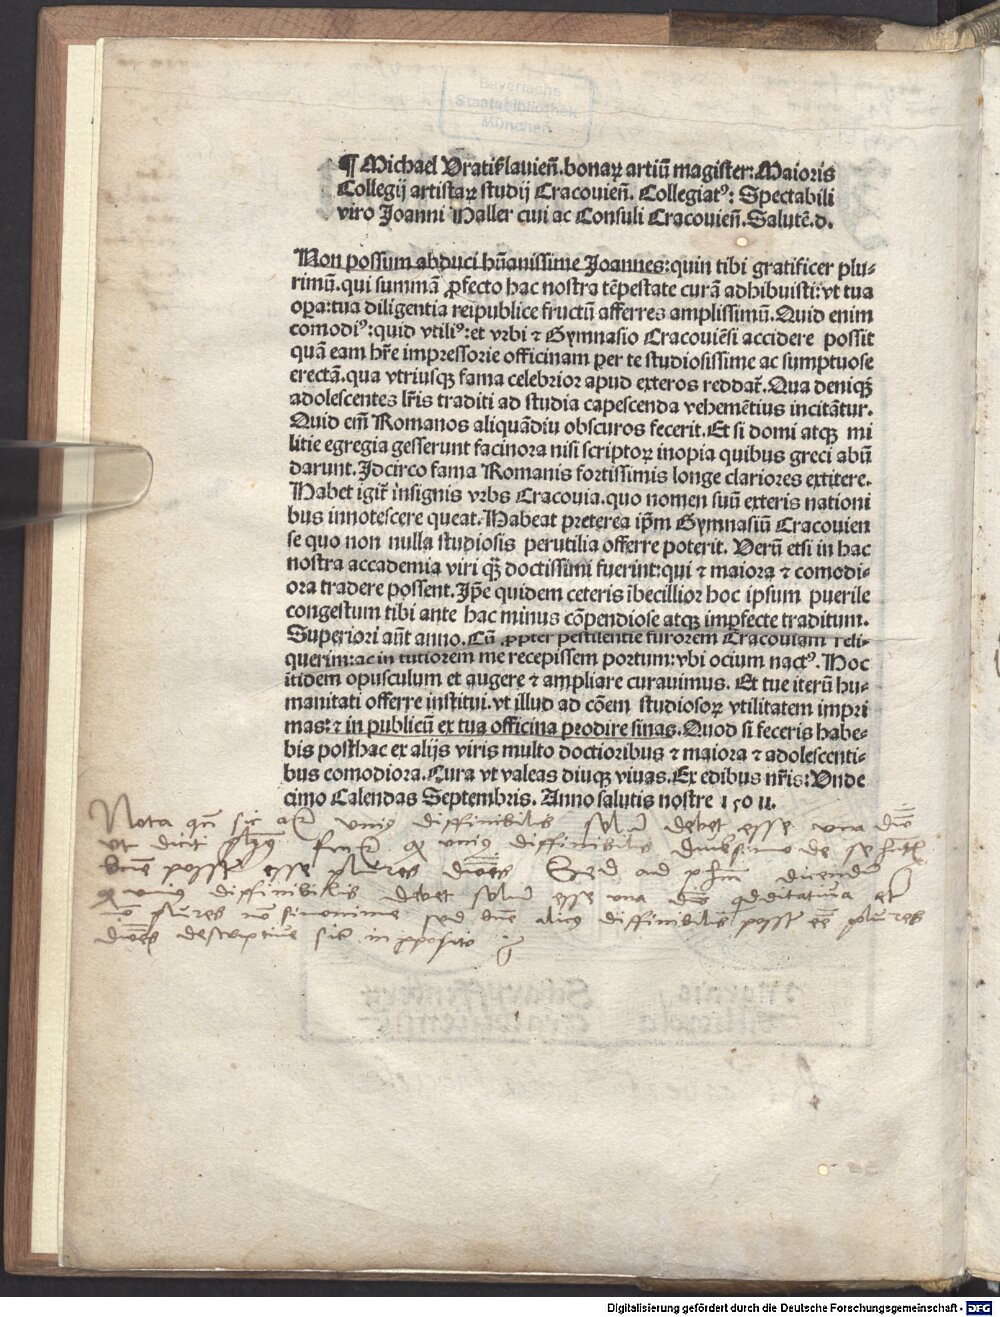 Bayerische
Staatsbibliothek
München
¶ Michael Vratislauien̄. bonaꝝ artiū magister: Maioris
Collegij artistaꝝ studij Cracouien̄. Collegiatꝰ: Spectabili
viro Joanni Haller ciui ac Consuli Cracouien̄. Salutē. d.
Non possum abduci hūanissime Joannes: quin tibi gratificer plu⸗
rimū. qui summā ꝓfecto hac nostra tēpestate curā adhibuisti: vt tua
oꝑa: tua diligentia reipublice fructū afferres amplissimū. Quid enim
comodiꝰ: quid vtiliꝰ: et vrbi ⁊ Gymnasio Cracouiēsi accidere possit
quā eam hr̄e impressorie officinam per te studiosissime ac sumptuose
erectā. qua vtriusqꝫ fama celebrior apud exteros reddat᷑. Qua deniqꝫ
adolescentes lr̄is traditi ad studia capescenda vehemētius incitātur.
Quid em̄ Romanos aliquādiu obscuros fecerit. Et si domi atqꝫ mi
litie egregia gesserunt facinora nisi scriptoꝝ inopia quibus greci abū
darunt. Jdcirco fama Romanis fortissimis longe clariores extitere.
Habet igit᷑ insignis vrbs Cracouia. quo nomen suū exteris nationi
bus innotescere queat. Habeat preterea ip̄m Gymnasiū Cracouien
se quo non nulla studiosis perutilia offerre poterit. Verū etsi in hac
nostra accademia viri qꝫ doctissimi fuerint: qui ⁊ maiora ⁊ comodi⸗
ora tradere possent. Jp̄e quidem ceteris ībecillior hoc ipsum puerile
congestum tibi ante hac minus cōpendiose atqꝫ imꝑfecte traditum.
Superiori aūt anno. Cū ꝓpter pestilentie furorem Cracouiam reli⸗
querim: ac in tutiorem me recepissem portum: vbi ocium nactꝰ. Hoc
itidem opusculum et augere ⁊ ampliare curauimus. Et tue iterū hu⸗
manitati offerre institui. vt illud ad cōem studiosoꝝ vtilitatem impri
mas: ⁊ in publicū ex tua officina prodire sinas. Quod si feceris habe⸗
bis posthac ex alijs viris multo doctioribus ⁊ maiora ⁊ adolescenti⸗
bus comodiora. Cura vt valeas diuqꝫ viuas. Ex edibus nr̄is: Vnde
cimo Calendas Septembris. Anno salutis nostre 1 50 11.
Nota sic vnius diffinibilis debet esse una
ut dicit vnius diffinibilis de se
posse esse plures Sed ad dicendū
vnius diffinibilis debet esse una et
plures sinonime sed alius diffinibilis plures
descriptiue sic in pposito
Digitalisierung gefördert durch die Deutsche Forschungsgemeinschaft - DFG